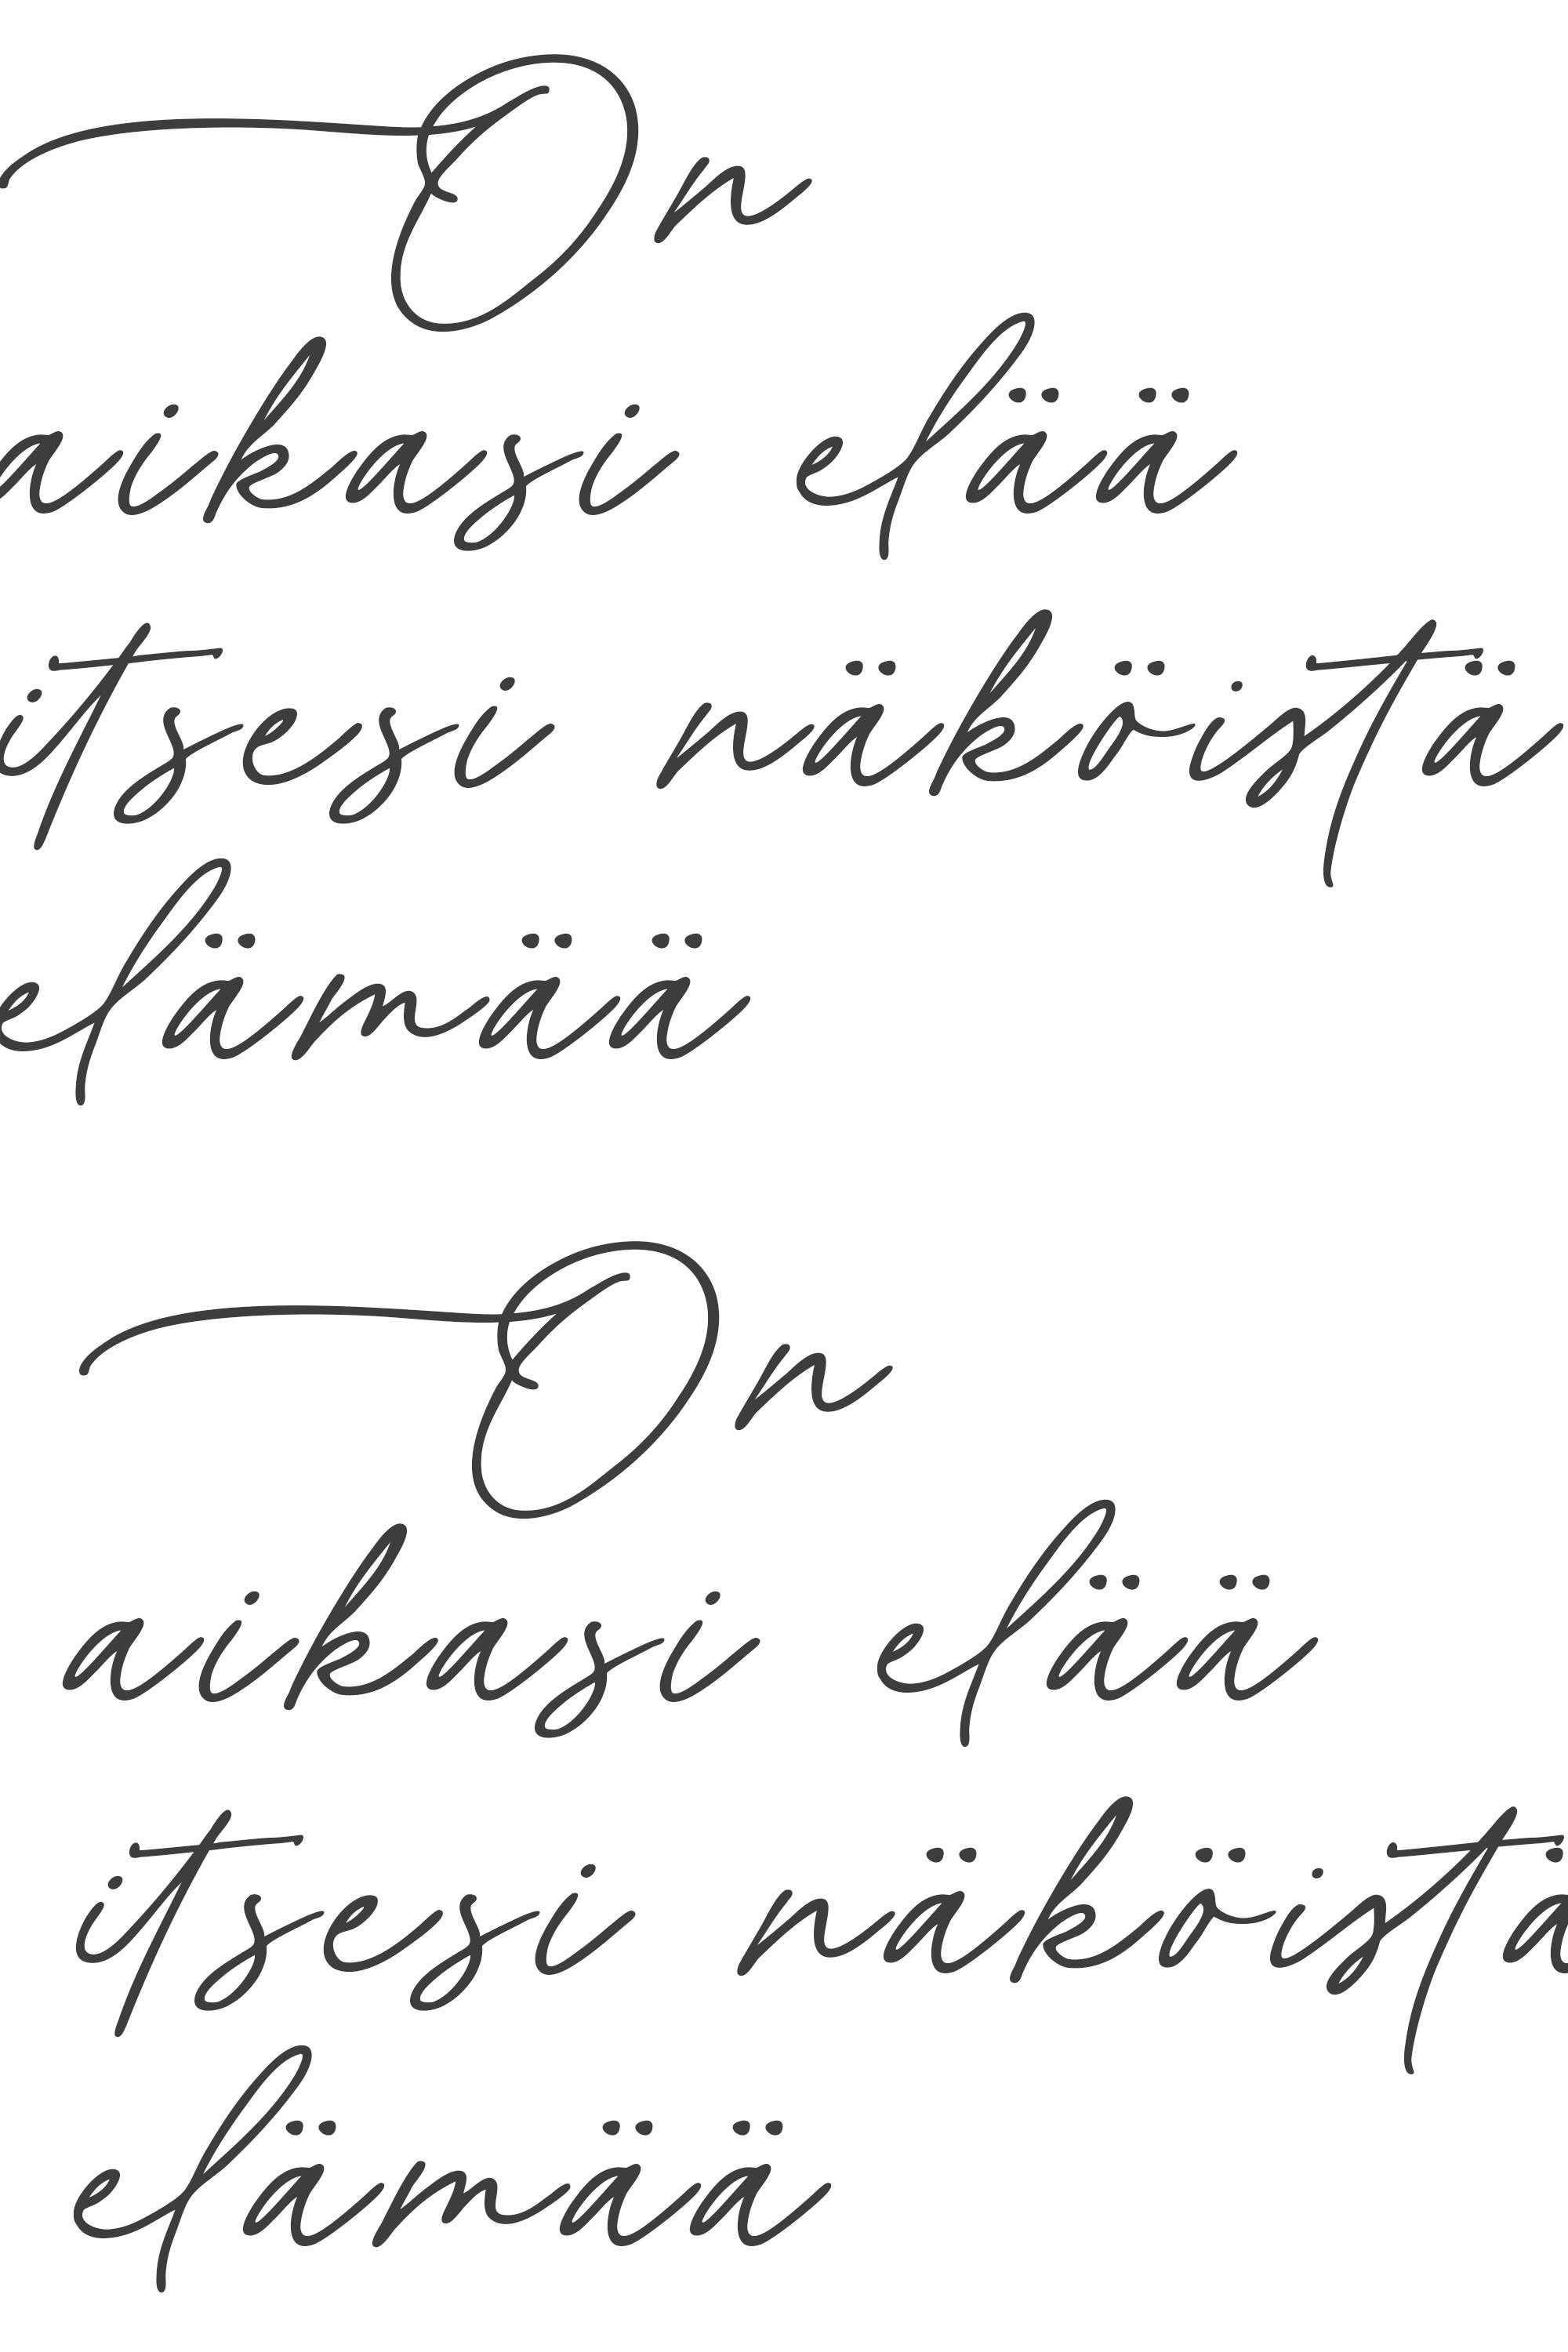 On
aikasi elää
itsesi näköistä
elämää
On
aikasi elää
itsesi näköistä
elämää